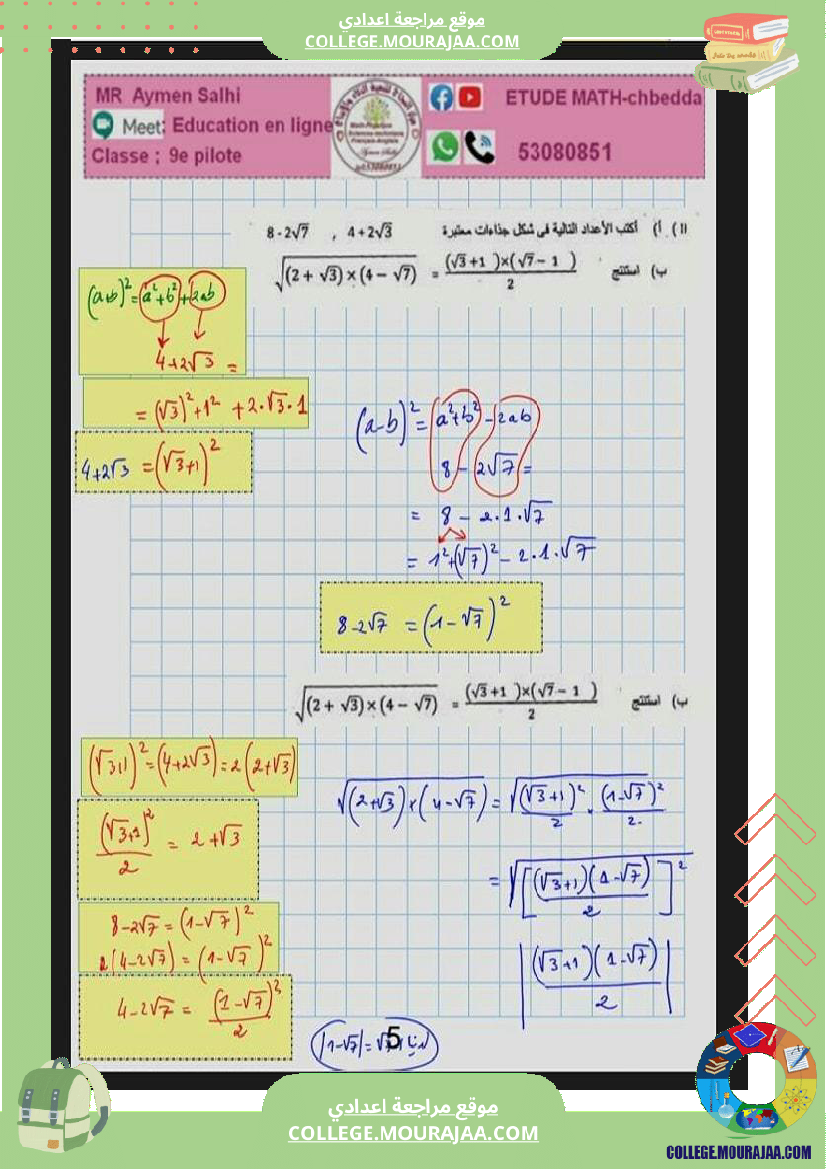 موقع مراجعة اعدادي
COLLEGE.MOURAJAA.COM
MR Aymen Salhi
Meet: Education en ligne
Classe ; 9e pilote
ETUDE MATH-chbedda
53080851
II) أ) أكتب الأعداد التالية في شكل جذاءات معتبرة 4+2√3 , 8-2√7
ب) استنتج √((2 + √3)×(4 − √7)) = (√3+1 )×(√7− 1 )/2
(a+b)² = a²+b²+2ab
4+2√3 =
= (√3)²+1² + 2·√3·1
4+2√3 = (√3+1)²
(a-b)² = a²+b² - 2ab
8 - 2√7 =
= 8 - 2·1·√7
= 1²+(√7)² - 2·1·√7
8-2√7 = (1-√7)²
ب) استنتج √((2 + √3)×(4 − √7)) = (√3+1 )×(√7− 1 )/2
(√3+1)² = (4+2√3) = 2(2+√3)
(√3+1)²/2 = 2+√3
8-2√7 = (1-√7)²
2(4-2√7) = (1-√7)²
4-2√7 = (1-√7)²/2
√((2+√3)×(4-√7)) = √((√3+1)²/2 · (1-√7)²/2)
= √[(√3+1)(1-√7)/2]²
|(√3+1)(1-√7)/2|
|1-√7| = √7
5
موقع مراجعة اعدادي
COLLEGE.MOURAJAA.COM
COLLEGE.MOURAJAA.COM